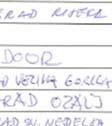 GRAD
DOOR
VELIKA GORICA
GRAD OZALJ
GRAD SV. NEDELJA